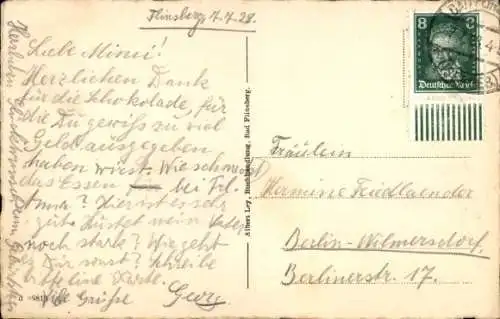 Flinsberg, 7.7.28.
Liebe Mimi!
Herzlichen Dank
für die Schokolade, für
die Du gewiß zu viel
Geld ausgegeben
haben wirst. Wie schmeckt
das Essen bei Frl.
Anna? Hier ist es sehr
gut. Hustet mein Vater
noch stark? Wie geht
es Dir sonst? Schreibe
bitte eine Karte.
Viele Grüße Georg
Herzlichen
8
Deutsches Reich
Albert Ley, Buchhandlung, Bad Flinsberg.
Fräulein
Hermine Friedlaender
Berlin-Wilmersdorf
Berlinerstr. 17.